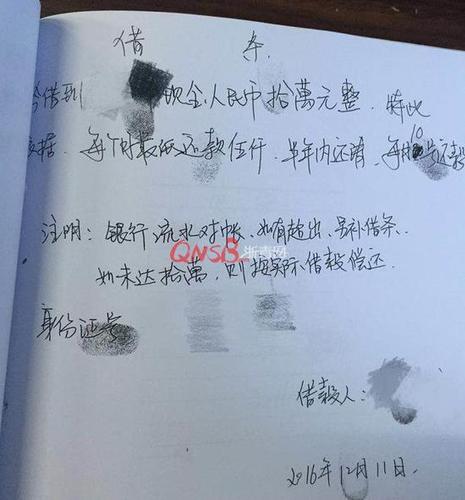 借 条
今借到 现金人民币拾萬元整.特此
立据.每个月最低还款伍仟.半年内还清,每月10号还款
注明:银行流水对帐、如有超出、另补借条.
如未达拾萬,则按实际借款偿还.
QNSB 浙青网
身份证号
借款人:
2016年12月11日.